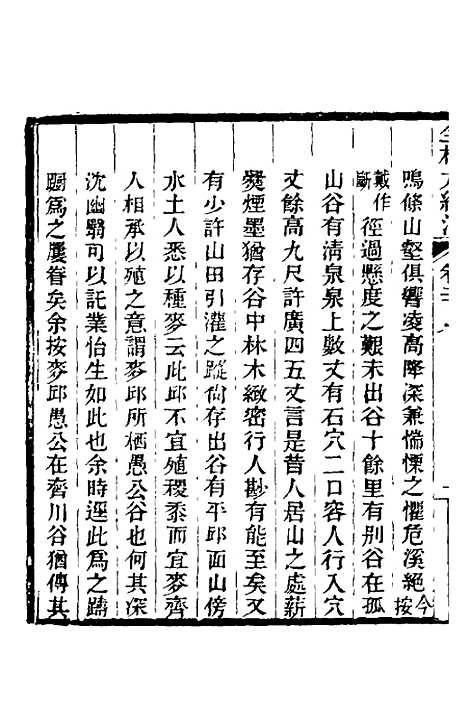 鳴條山壑俱響凌高降深兼惴慄之懼危溪絕今按
戴作斷徑過懸度之艱未出谷十餘里有别谷在孤
山谷有淸泉泉上數丈有石穴二口容人行入穴
丈餘高九尺許廣四五丈言是昔人居山之處薪
爨煙墨猶存谷中林木緻密行人尠有能至矣又
有少許山田引灌之蹤尙存出谷有平邱面山傍
水土人悉以種麥云此邱不宜殖稷黍而宜麥齊
人相承以殖之意謂麥邱所栖愚公谷也何其深
沈幽翳可以託業怡生如此也余時逕此爲之躊
躕爲之屢眷矣余按麥邱愚公在齊川谷猶傳其